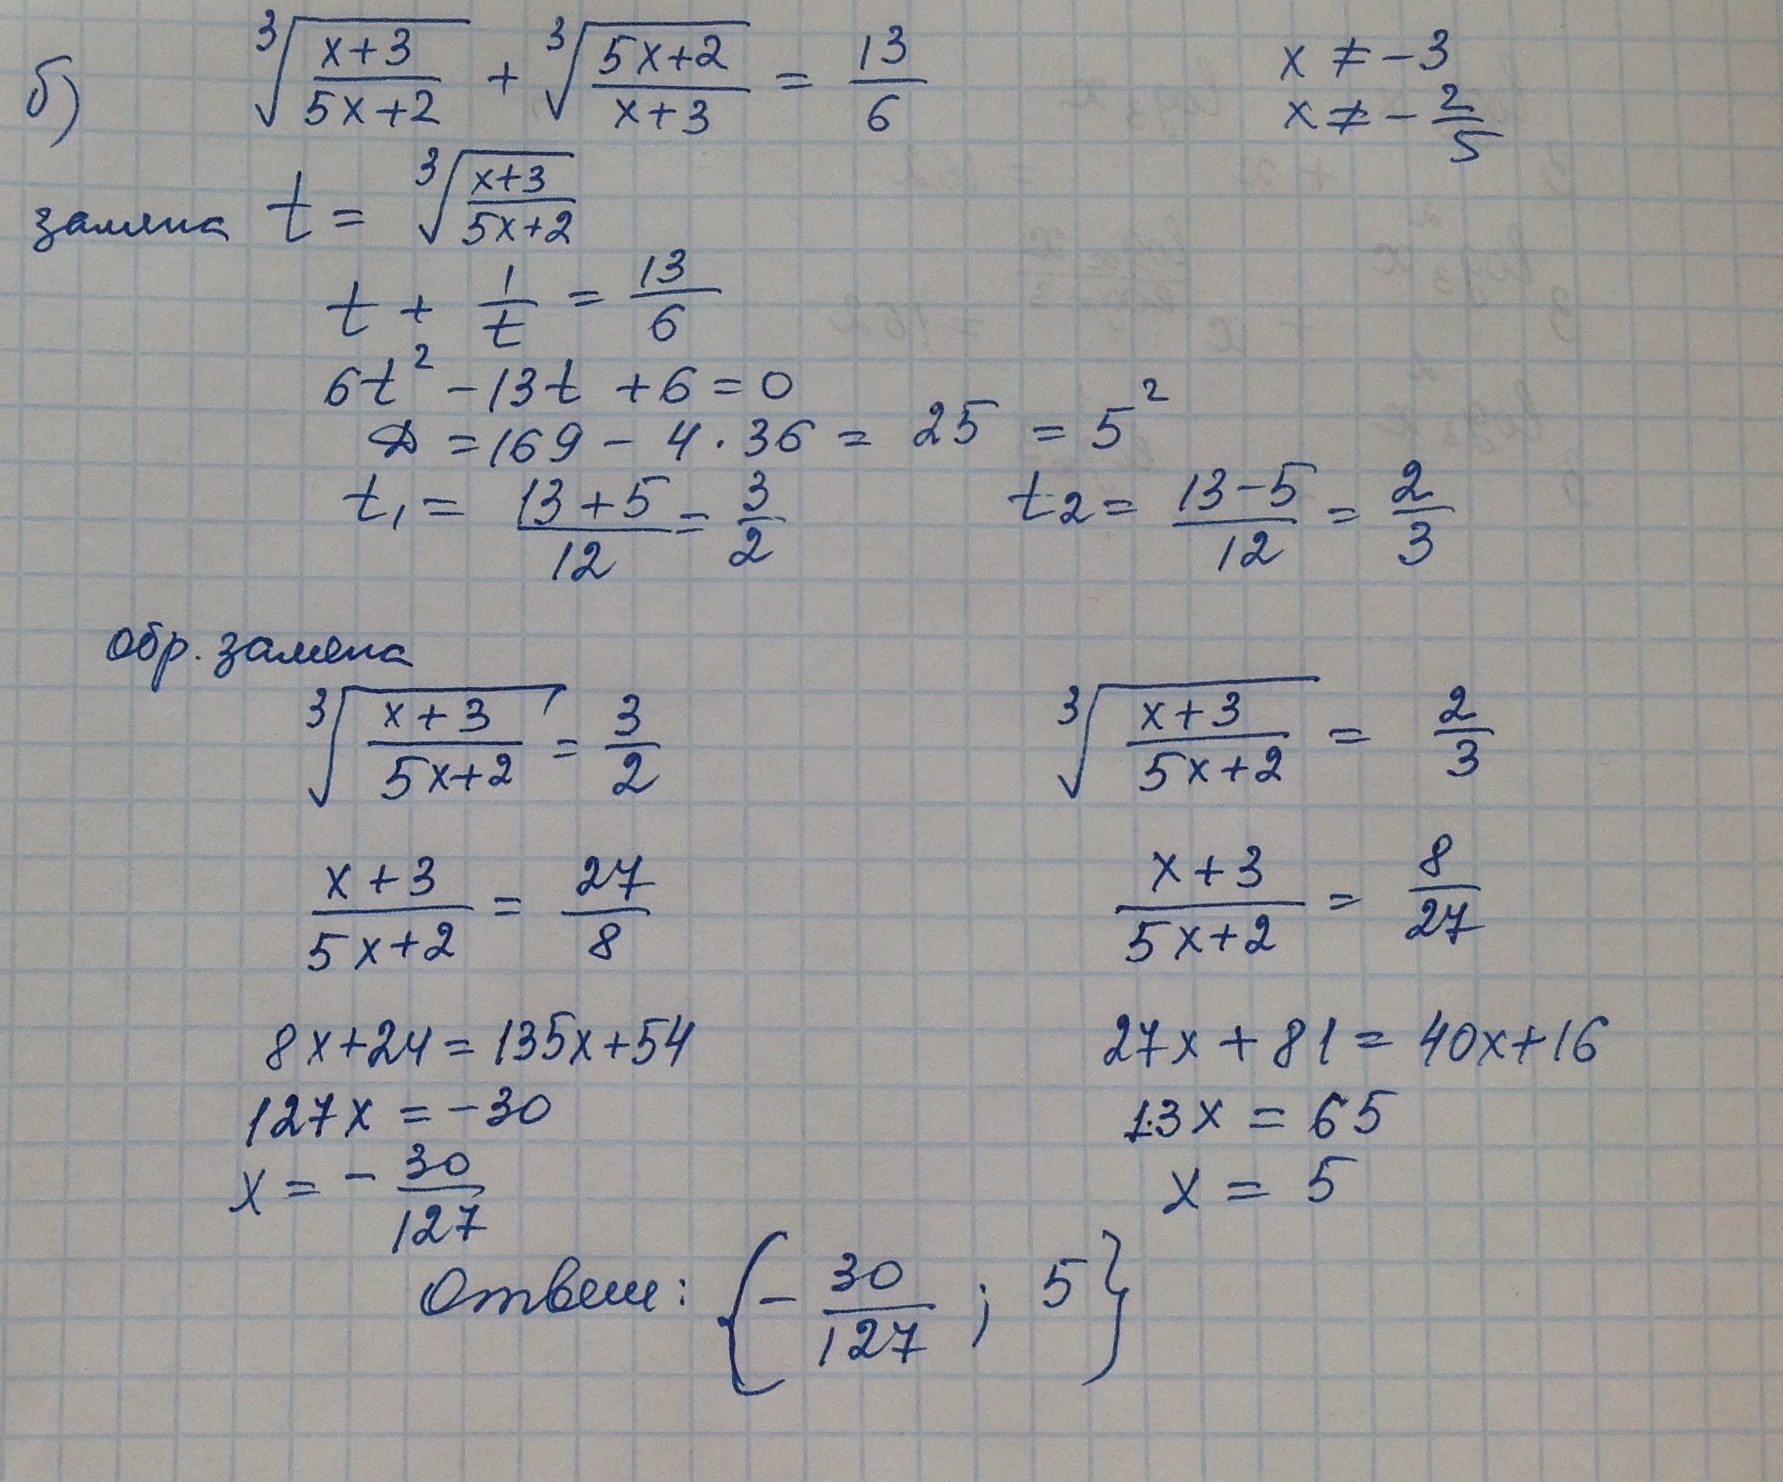 б) ∛((x+3)/(5x+2)) + ∛((5x+2)/(x+3)) = 13/6
x ≠ -3
x ≠ -2/5
замена t = ∛((x+3)/(5x+2))
t + 1/t = 13/6
6t² - 13t + 6 = 0
D = 169 - 4·36 = 25 = 5²
t₁ = (13+5)/12 = 3/2
t₂ = (13-5)/12 = 2/3
Обр. замена
∛((x+3)/(5x+2)) = 3/2
(x+3)/(5x+2) = 27/8
8x+24 = 135x+54
127x = -30
x = -30/127
∛((x+3)/(5x+2)) = 2/3
(x+3)/(5x+2) = 8/27
27x + 81 = 40x+16
13x = 65
x = 5
Ответ: {-30/127 ; 5}